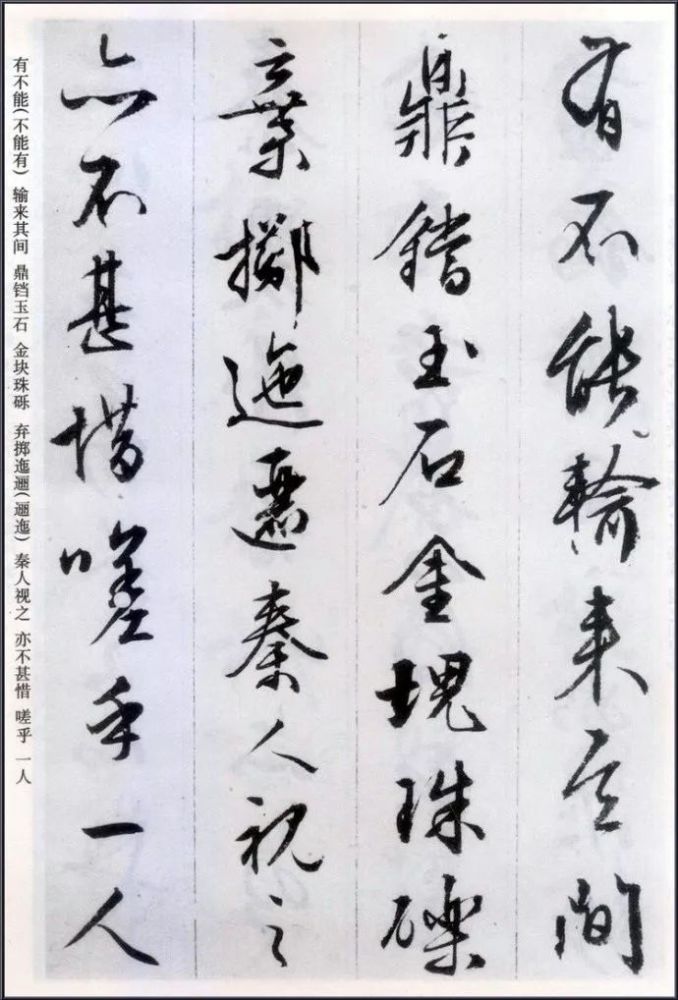 有不能輸来其間
鼎鐺玉石金塊珠礫
棄擲迤邐秦人視之
亦不甚惜嗟乎一人
有不能(不能有) 输来其间 鼎铛玉石 金块珠砾 弃掷迤逦(逦迤) 秦人视之 亦不甚惜 嗟乎 一人